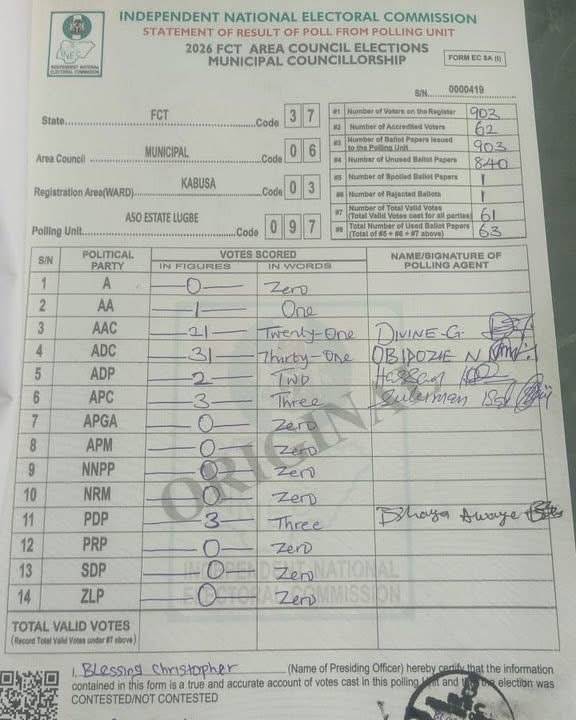 INDEPENDENT NATIONAL ELECTORAL COMMISSION
STATEMENT OF RESULT OF POLL FROM POLLING UNIT
2026 FCT AREA COUNCIL ELECTIONS
MUNICIPAL COUNCILLORSHIP
FORM EC 8A (I)
INEC
INDEPENDENT NATIONAL
ELECTORAL COMMISSION
S/N. 0000419
State FCT Code 3 7
Area Council MUNICIPAL Code 0 6
Registration Area(WARD) KABUSA Code 0 3
Polling Unit. ASO ESTATE LUGBE Code 0 9 7
#1 Number of Voters on the Register 903
#2 Number of Accredited Voters 62
#3 Number of Ballot Papers issued to the Polling Unit 903
#4 Number of Unused Ballot Papers 840
#5 Number of Spoiled Ballot Papers 1
#6 Number of Rejected Ballots 1
#7 Number of Total Valid Votes (Total Valid Votes cast for all parties) 61
#8 Total Number of Used Ballot Papers (Total of #5 + #6 + #7 above) 63
S/N POLITICAL PARTY VOTES SCORED NAME/SIGNATURE OF POLLING AGENT
IN FIGURES IN WORDS
1 A 0 Zero
2 AA 1 One
3 AAC 21 Twenty-One DIVINE-G.
4 ADC 31 Thirty-One OBIDOZIE N
5 ADP 2 Two Hassan
6 APC 3 Three Suleiman
7 APGA 0 Zero
8 APM 0 Zero
9 NNPP 0 Zero
10 NRM 0 Zero
11 PDP 3 Three
12 PRP 0 Zero
13 SDP 0 Zero
14 ZLP 0 Zero
ORIGINAL
INDEPENDENT NATIONAL
ELECTORAL COMMISSION
TOTAL VALID VOTES
(Record Total Valid Votes under #7 above)
I, Blessing Christopher (Name of Presiding Officer) hereby certify that the information
contained in this form is a true and accurate account of votes cast in this polling Unit and the election was
CONTESTED/NOT CONTESTED